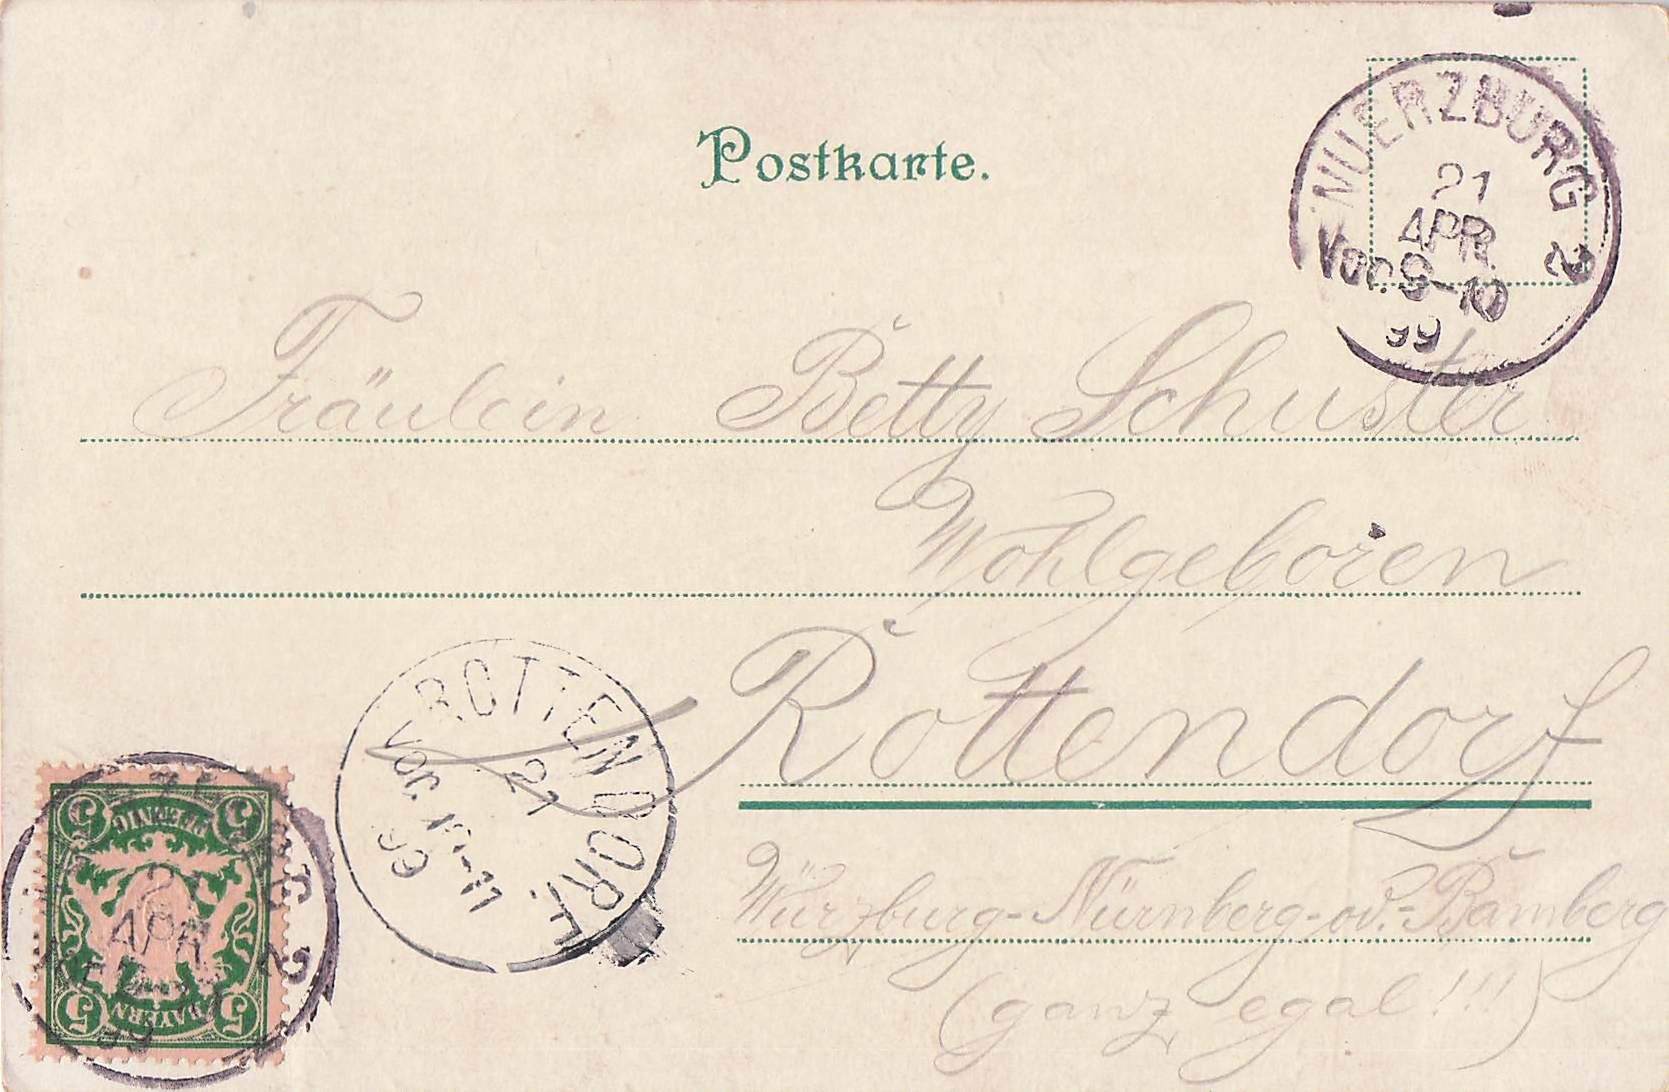 Postkarte.
WUERZBURG 2
21
APR
Vor. 9-10
99
Fräulein Betty Schuster
Wohlgeboren
Rottendorf
ROTTENDORF.
21
Vor. 11
99
Würzburg-Nürnberg-od.-Bamberg
(ganz egal!!!)
5 5
PFENNIG
2
21
APR
99
BAYERN
5 5